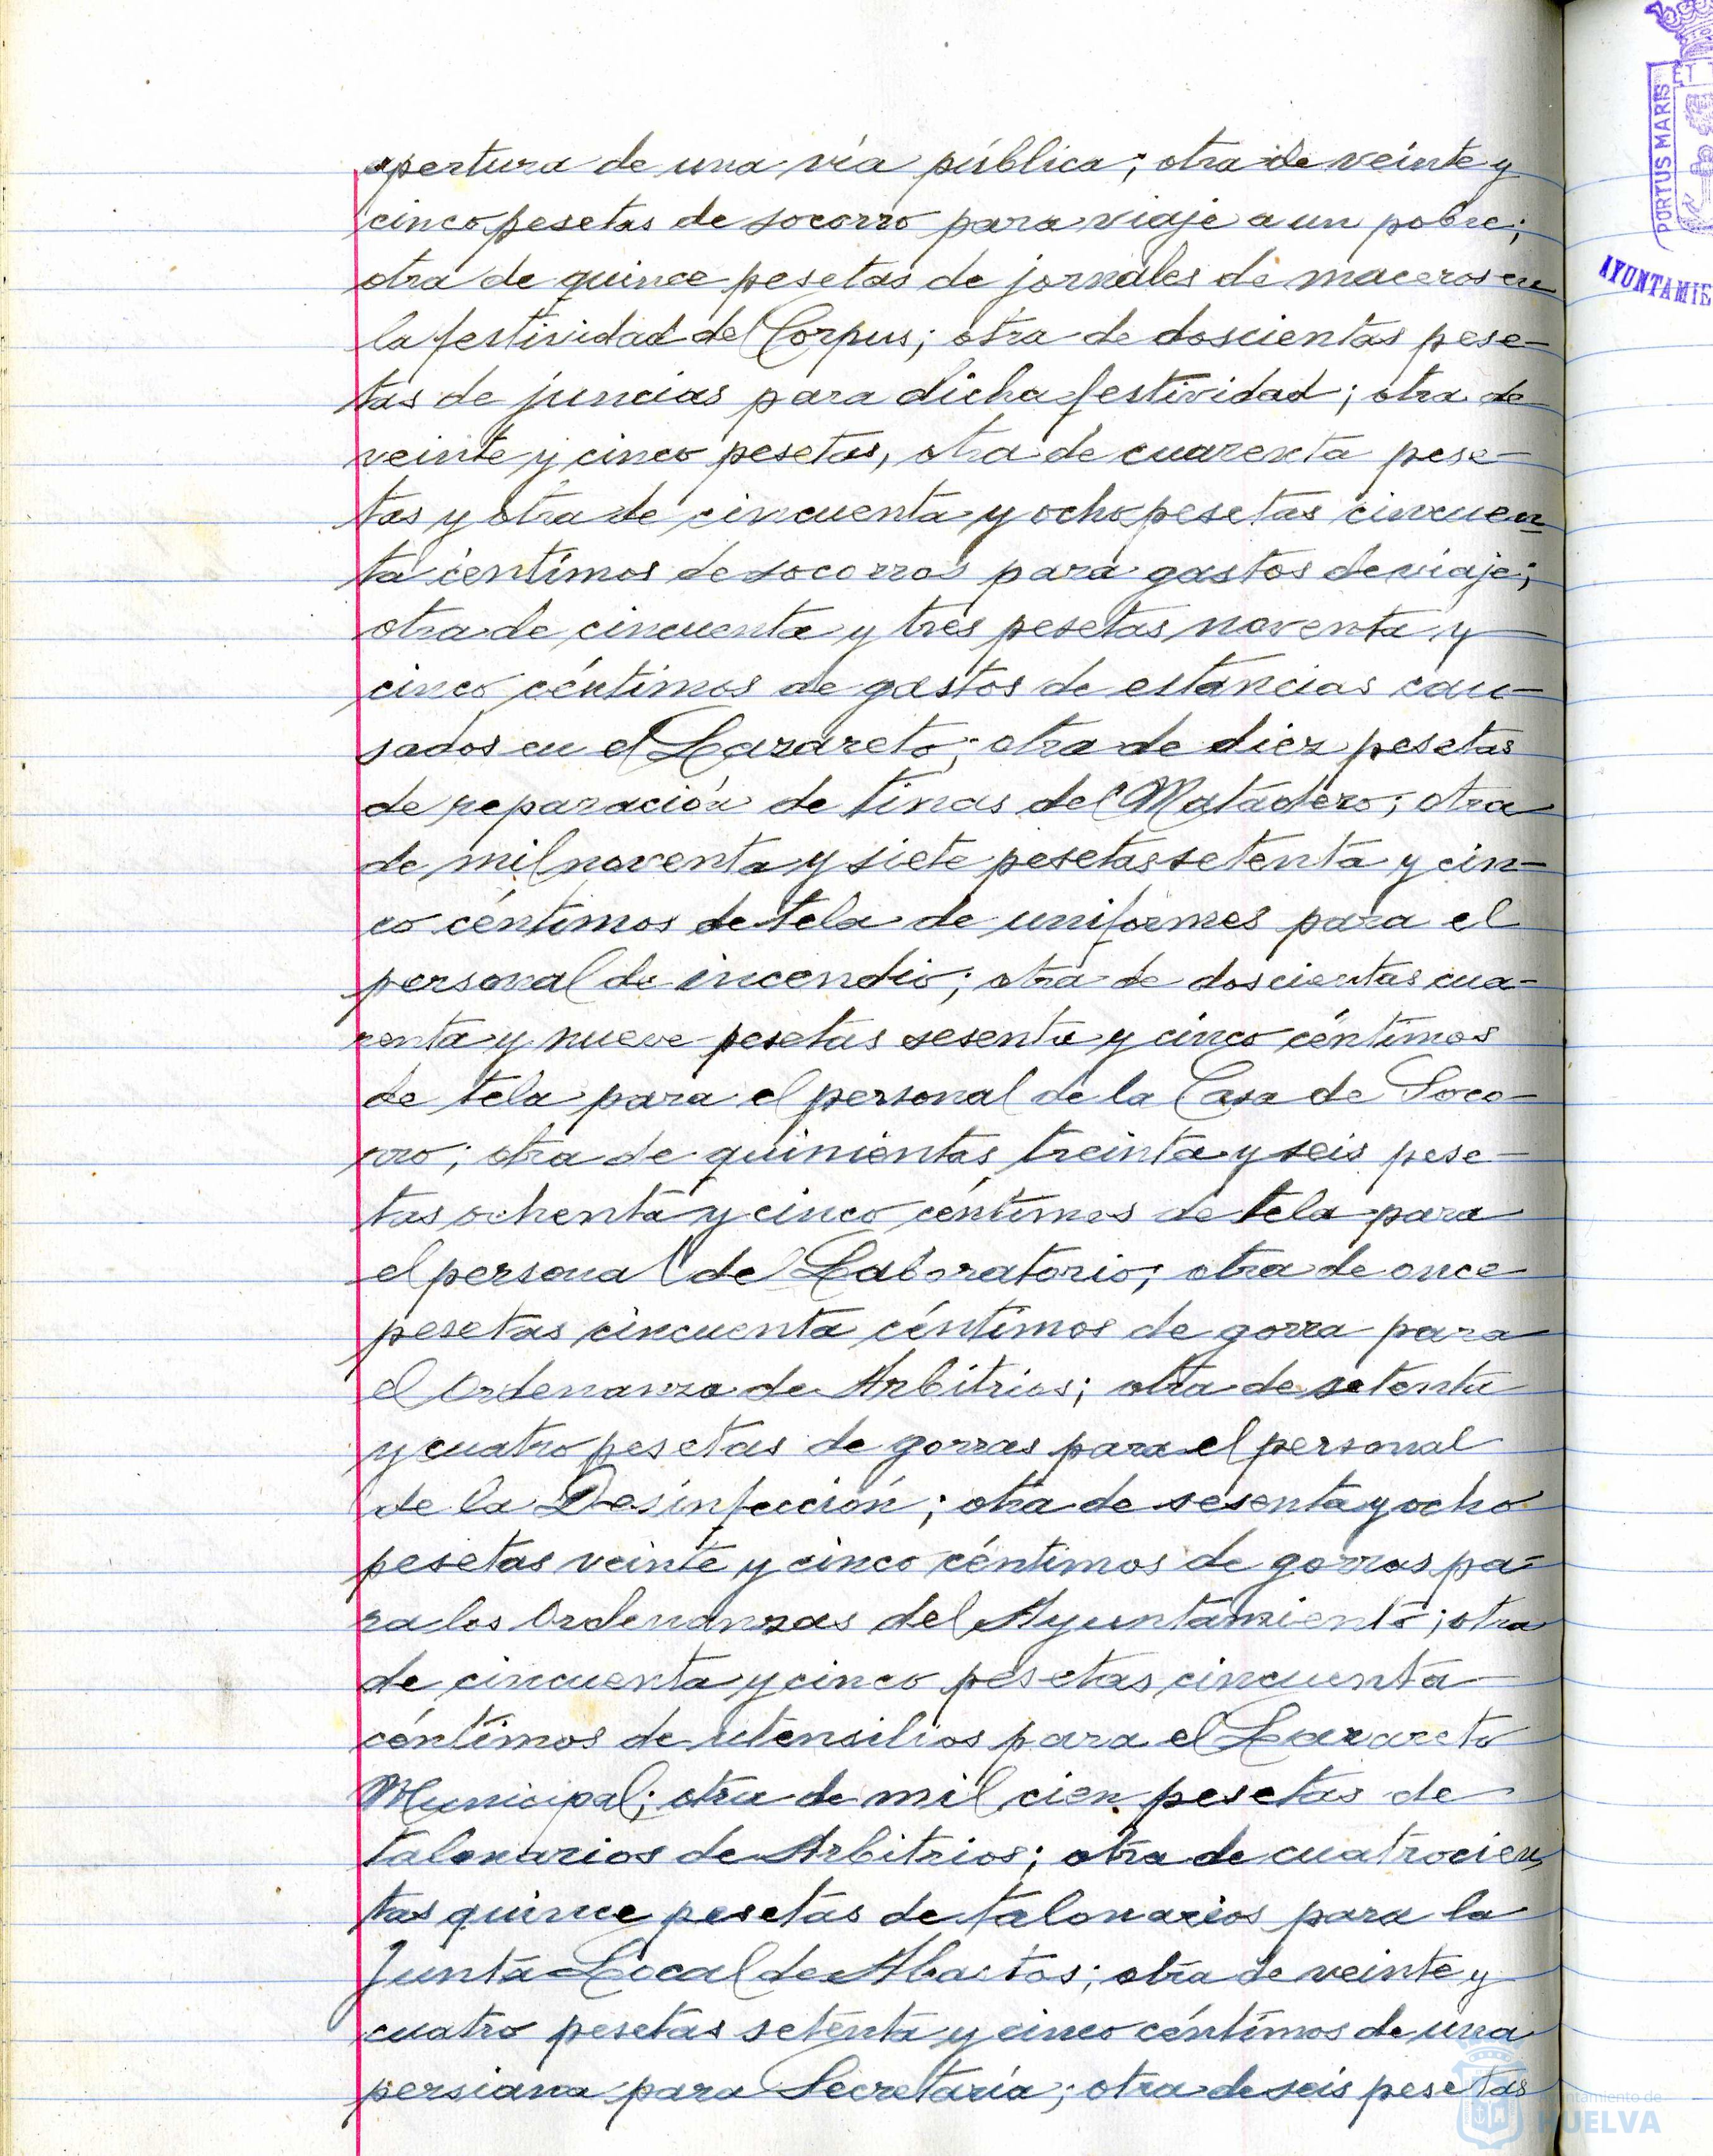 apertura de una vía pública; otra de veinte y
cinco pesetas de socorro para viaje a un pobre;
otra de quince pesetas de jornales de maceros en
la festividad del Corpus; otra de doscientas pese-
tas de juncias para dicha festividad; otra de
veinte y cinco pesetas, otra de cuarenta pese-
tas y otra de cincuenta y ocho pesetas cincuen
ta céntimos de socorros para gastos de viaje;
otra de cincuenta y tres pesetas noventa y
cinco céntimos de gastos de estancias cau-
sados en el Lazareto; otra de diez pesetas
de reparación de tinas del Matadero; otra
de mil noventa y siete pesetas setenta y cin-
co céntimos de tela de uniformes para el
personal de incendio; otra de doscientas cua-
renta y nueve pesetas sesenta y cinco céntimos
de tela para el personal de la Casa de Soco-
rro; otra de quinientas treinta y seis pese-
tas ochenta y cinco céntimos de tela para
el personal del Laboratorio; otra de once
pesetas cincuenta céntimos de gorra para
el Ordenanza de Arbitrios; otra de setenta
y cuatro pesetas de gorras para el personal
de la Desinfección; otra de sesenta y ocho
pesetas veinte y cinco céntimos de gorras pa-
ra los Ordenanzas del Ayuntamiento; otra
de cincuenta y cinco pesetas cincuenta
céntimos de utensilios para el Lazareto
Municipal; otra de mil cien pesetas de
talonarios de Arbitrios; otra de cuatrocien
tas quince pesetas de talonarios para la
Junta Local de Abastos; otra de veinte y
cuatro pesetas setenta y cinco céntimos de una
persiana para Secretaría; otra de seis pesetas
PORTUS MARIS
ET T
AYUNTAMIE
Ayuntamiento de
HUELVA